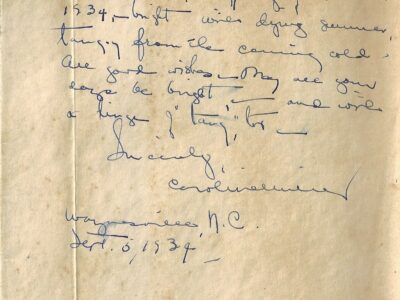 1934, bright with dying summer,
tangy from the coming cold.
All good wishes — May all your
days be bright — and with
a tinge of "tang," too —
Sincerely,
Caroline Miller
Waynesville, N.C.
Sept. 6, 1934 —